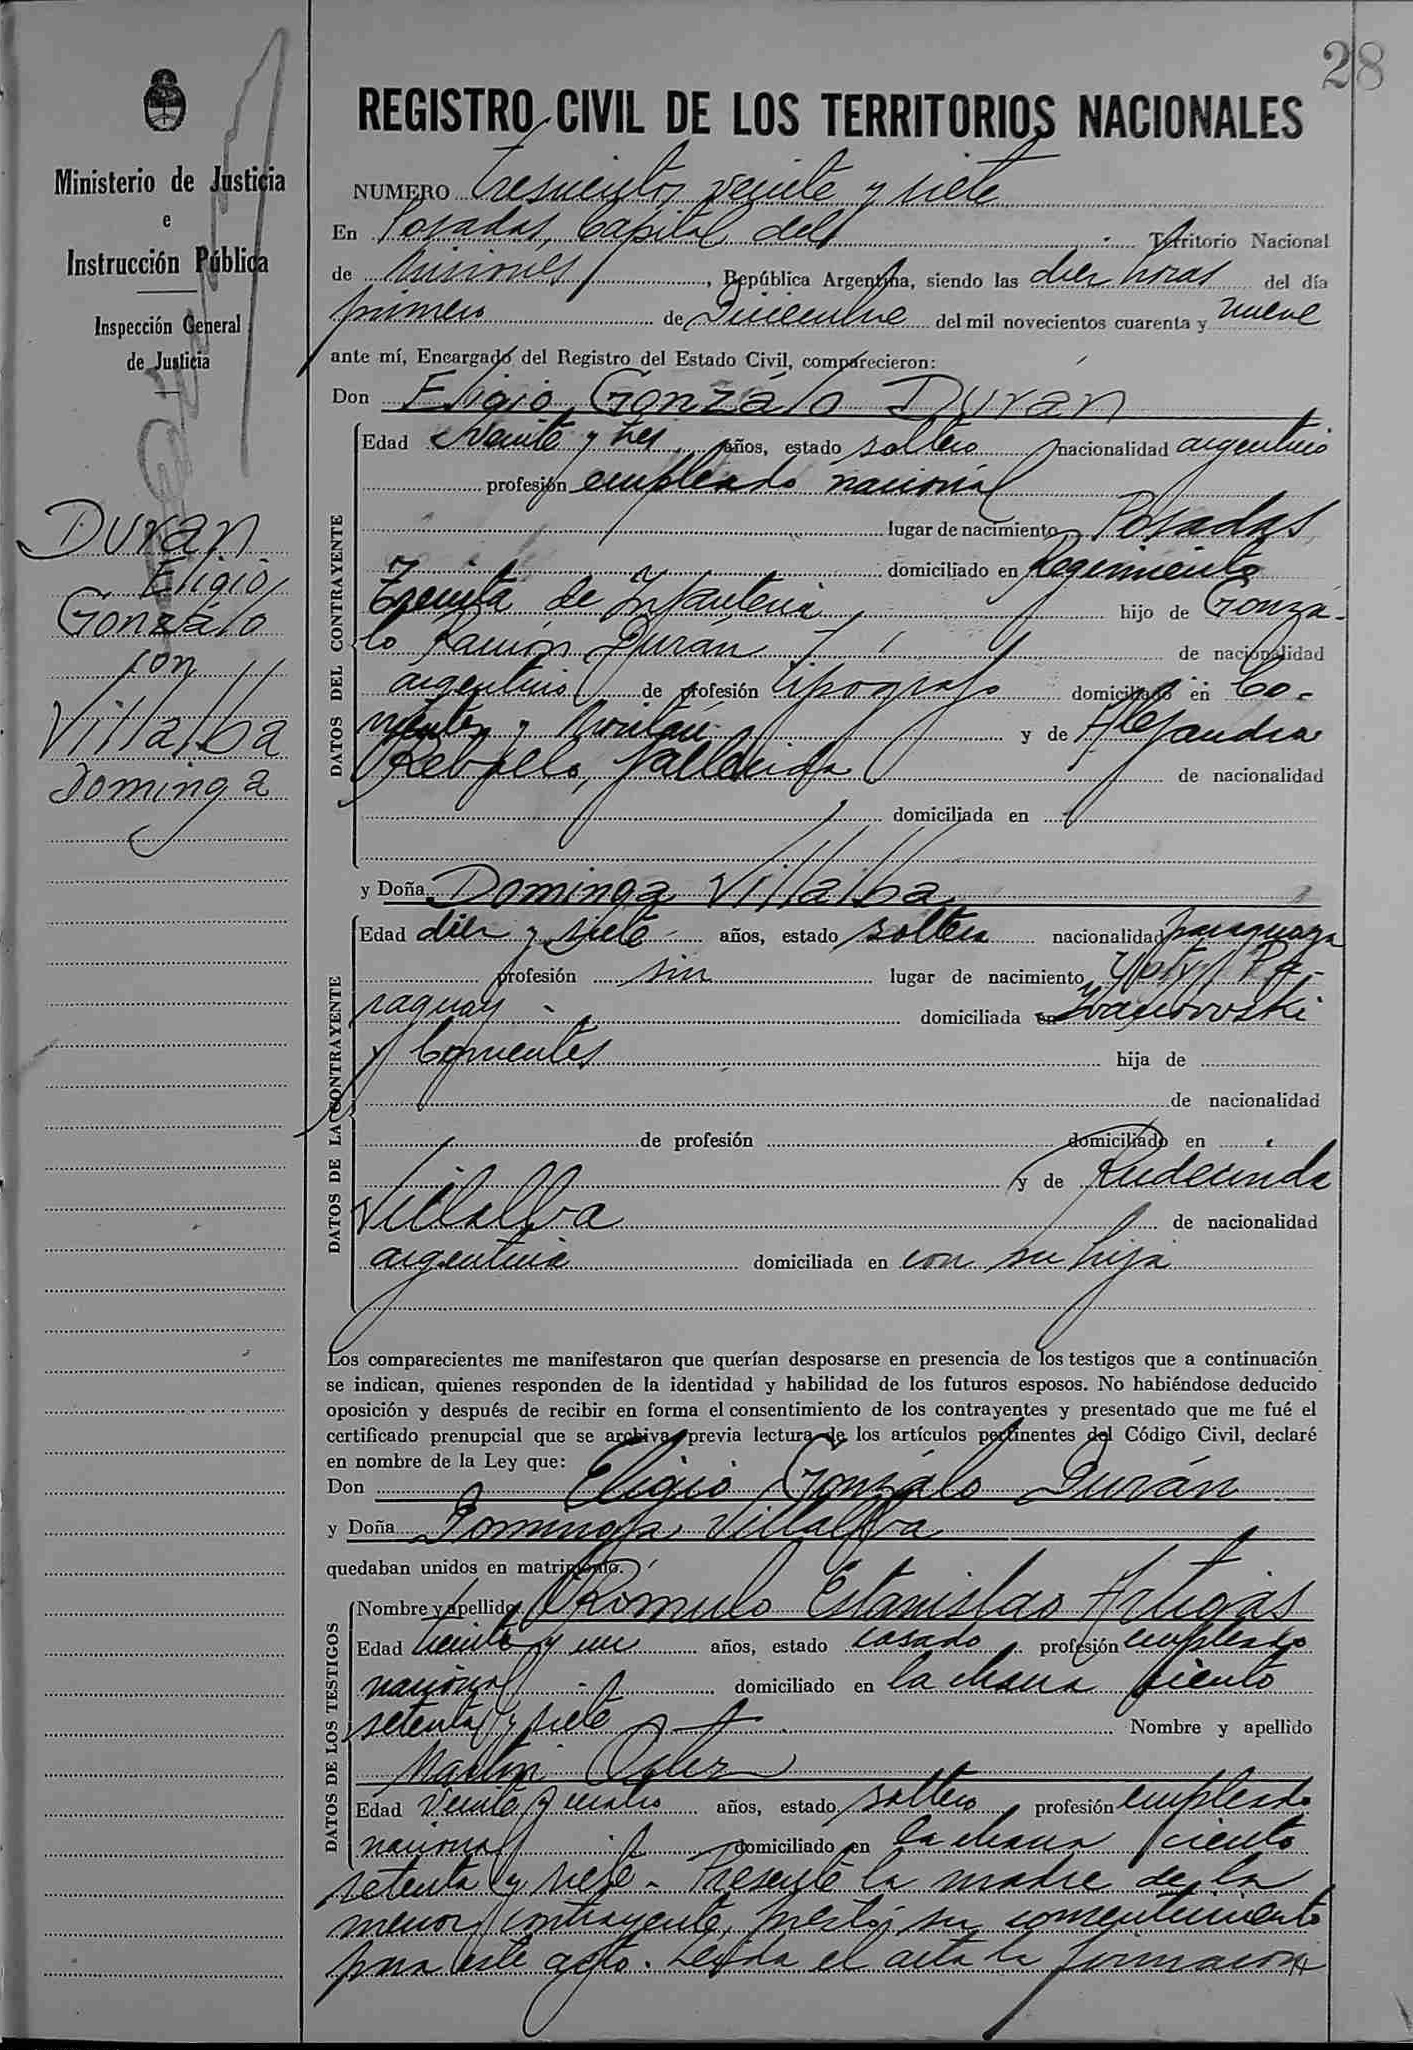 28
Ministerio de Justicia
e
Instrucción Pública
Inspección General
de Justicia
Duran
Eligio
Gonzálo
con
Villalba
Dominga
REGISTRO CIVIL DE LOS TERRITORIOS NACIONALES
NUMERO Trescientos veinte y siete
En Posadas, Capital del Territorio Nacional
de Misiones, República Argentina, siendo las diez horas del día
primero de Diciembre del mil novecientos cuarenta y nueve
ante mí, Encargado del Registro del Estado Civil, comparecieron:
Don Eligio Gonzálo Durán
DATOS DEL CONTRAYENTE
Edad veinte y tres años, estado soltero nacionalidad argentino
profesión empleado nacional
lugar de nacimiento Posadas
domiciliado en Regimiento
Treinta de Infanteria hijo de Gonzá-
lo Ramón Durán de nacionalidad
argentino de profesión tipografo domiciliado en Co-
rrientes y y de Alejandra
Rebollo, fallecida de nacionalidad
domiciliada en
y Doña Dominga Villalba
DATOS DE LA CONTRAYENTE
Edad diez y siete años, estado soltera nacionalidad paraguaya
profesión sin lugar de nacimiento Yaty Pa-
raguay domiciliada en Ivanovski
y Corrientes hija de
de nacionalidad
de profesión domiciliado en
y de Rudecinda
Villalba de nacionalidad
argentina domiciliada en con su hija
Los comparecientes me manifestaron que querían desposarse en presencia de los testigos que a continuación
se indican, quienes responden de la identidad y habilidad de los futuros esposos. No habiéndose deducido
oposición y después de recibir en forma el consentimiento de los contrayentes y presentado que me fué el
certificado prenupcial que se archiva, previa lectura de los artículos pertinentes del Código Civil, declaré
en nombre de la Ley que:
Don Eligio Gonzálo Durán
y Doña Dominga Villalba
quedaban unidos en matrimonio.
DATOS DE LOS TESTIGOS
Nombre y apellido Rómulo Estanislao Artigas
Edad treinta y un años, estado casado profesión empleado
nacional domiciliado en la chacra ciento
setenta y siete Nombre y apellido
Martin
Edad veinte y cuatro años, estado soltero profesión empleado
nacional domiciliado en la chacra ciento
setenta y siete - Presente la madre de la
menor contrayente, prestó su consentimiento
para este acto. Leida el acta la firmaron